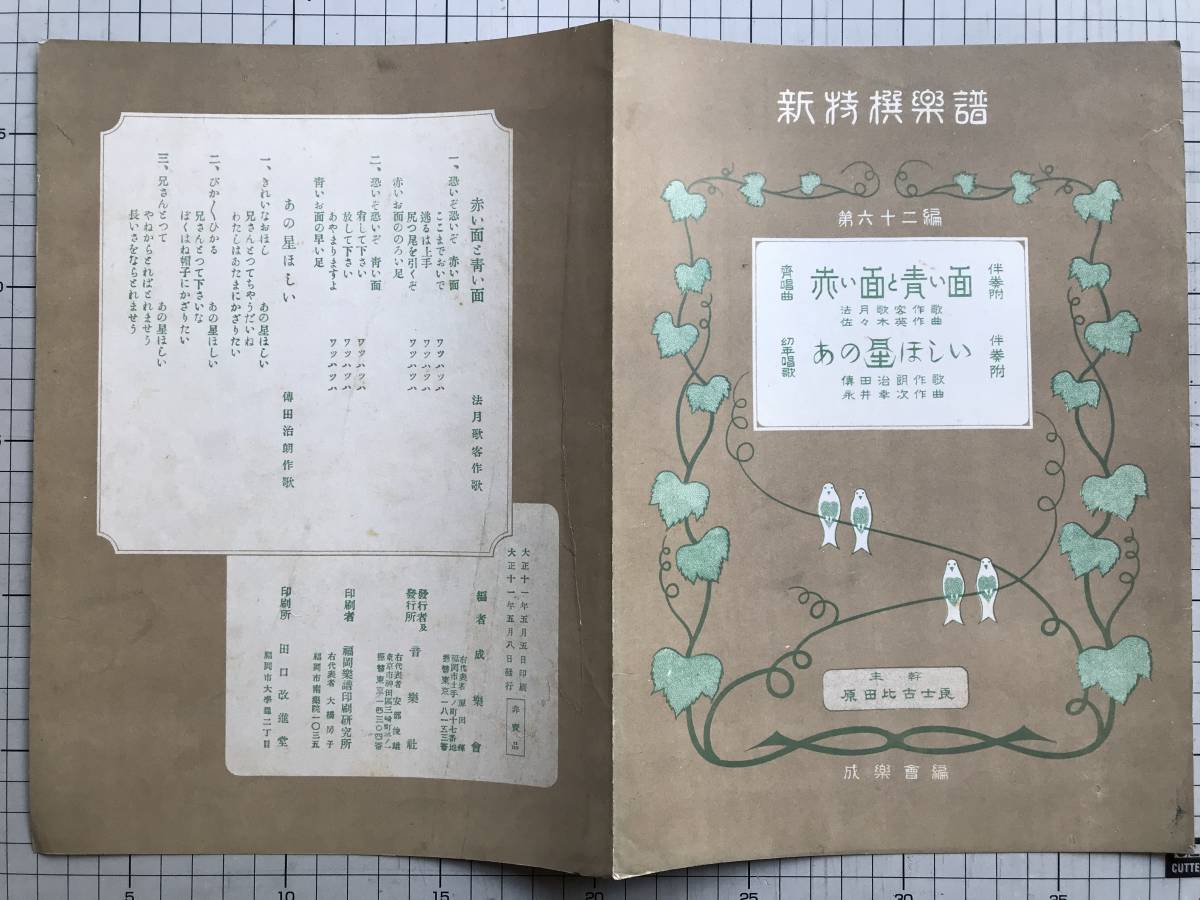 新撰特樂譜
第六十二編
齊唱曲 赤い面と青い面 伴奏附
法月歌客作歌
佐々木英作曲
幼年唱歌 あの星ほしい 伴奏附
傳田治朗作歌
永井幸次作曲
主幹
原田比古士良
成樂會編
赤い面と青い面 法月歌客作歌
一、恐いぞ恐いぞ 赤い面
ここまでおいで ワツハツハ
逃るは上手 ワツハツハ
尻つ尾を引くぞ ワツハツハ
赤いお面ののろい足
二、恐いぞ恐いぞ 青い面
宥して下さい ワツハツハ
放して下さい ワツハツハ
あやまりますよ ワツハツハ
青いお面の早い足
あの星ほしい 傳田治朗作歌
一、きれいなおほし あの星ほしい
兄さんとつてちやうだいね
わたしはあたまにかざりたい
二、ぴか〱ひかる あの星ほしい
兄さんとつて下さいな
ぼくはね帽子にかざりたい
三、兄さんとつて あの星ほしい
やねからとればとれませう
長いさをならとれませう
大正十一年五月五日印刷
大正十一年五月八日發行
非賣品
編者 成樂會
右代表者 原田
福岡市土手ノ町十七番地
振替東京一八一五三番
發行者及
發行所 音樂社
右代表者 安部俊雄
東京市神田區三崎町
振替東京
印刷者 福岡樂譜印刷研究所
右代表者 大橋房子
福岡市南藥院一〇三五
印刷所 田口改進堂
福岡市大學通二丁目
5
10
15
20
25
CUTTE